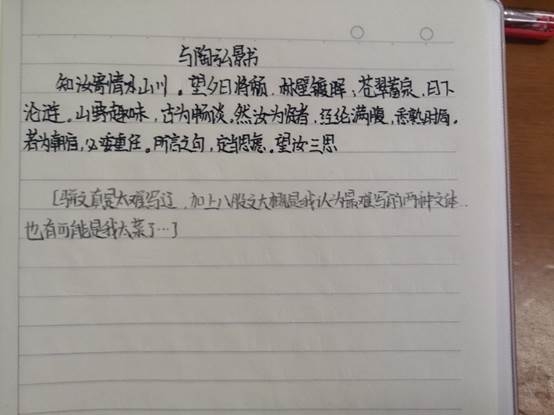 与陶弘景书
知汝寄情于山川。望夕日将颓,赤壁镀晖,苍翠蓄泉,日下
沦涟。山野趣味,古为畅谈。然汝为贤者,经纶满腹,悉熟时局,
若为朝臣,必委重任。所言之句,定当思虑。望汝三思
[骈文真是太难写辽,加上八股文大概是我认为最难写的两种文体,
也有可能是我太菜了…]